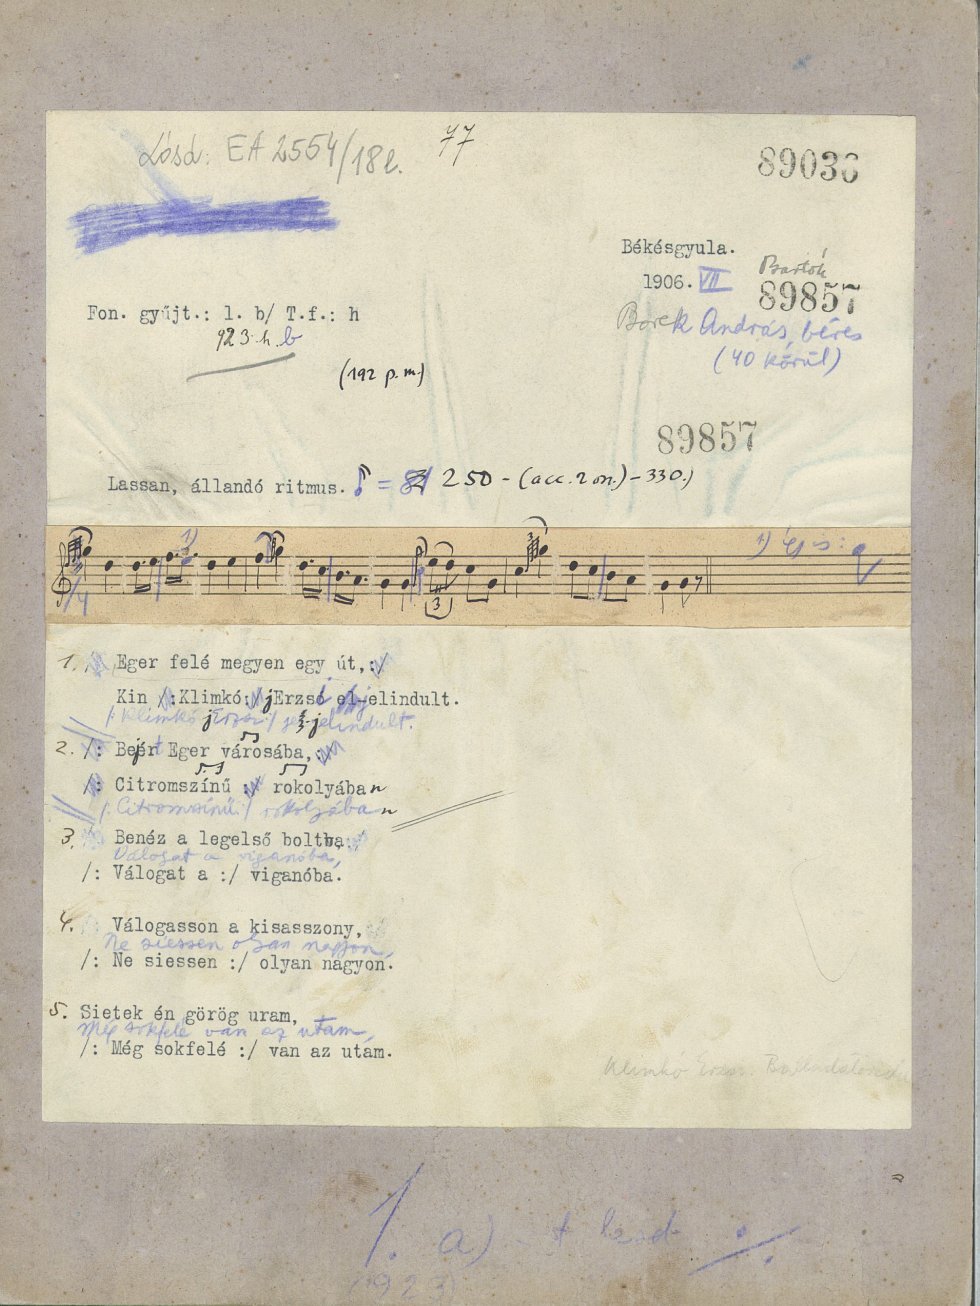 Lásd: EA 2554/18 l.
77
89036
Békésgyula.
1906. VII
Bartók
89857
Fon. gyűjt.: l. b/ T.f.: h
923.h.b
Borek András, béres
(40 körül)
(192 p.m.)
89857
Lassan, állandó ritmus. ♪ = 250 - (acc. 2 on.) - 330.)
1)
1) és:
3
1. Eger felé megyen egy út, :/
Kin /:Klimkó:/ jErzsó el-jelindult.
/: Klimkó jErzsi:/ jelindult.
2. /: Bejért Eger városába, :/
/: Citromszínű :/ rokolyában
/: Citromszínű :/ rokolyában
3. Benéz a legelső boltba,
Válogat a viganóba,
/: Válogat a :/ viganóba.
4. Válogasson a kisasszony,
Ne siessen olyan nagyon,
/: Ne siessen :/ olyan nagyon.
5. Sietek én görög uram,
Még sokfelé van az utam,
/: Még sokfelé :/ van az utam.
Klimkó Erzsi.
1. a)
(1923)